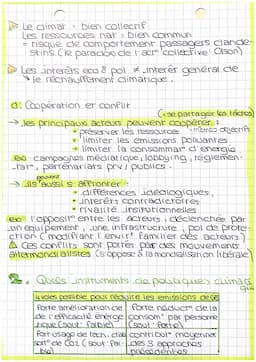 Le climat : bien collectif
Les ressources nat : bien commun
= risque de comportement passagers clande-
stins (le paradoxe de l'act° collective : Olson)
Les intérêts eco & pol ≠ intérêt général de
le réchauffement climatique.
d. Coopération et conflit
(= se partager les tâches)
→ les principaux acteurs peuvent coopérer :
+ préserver les ressources
+ limiter les émissions polluantes
+ limiter la consommat° d'énergie
ex campagnes médiatique, lobbying, réglemen-
tat°, partenariats privé / publics.
peuvent
→ ils aussi s'affronter :
+ différences idéologiques,
+ intérêts contradictoires
+ rivalité institutionnelles
ex l'opposit° entre les acteurs, déclenchés par
un équipement, une infrastructure, pol de protec-
tion (modifiant l'envir° familier des acteurs)
Ces conflits sont portés par des mouvements
altermondialistes (s'oppose à la mondialisation libérale)
2. Quels instruments de politiques climatiq
4 voies possible pour réduire les émissions de GES
Forte amélioration de
l'efficacité énergé
tique (sout : faible)
Forte réduct° de la
consom° par personne
(sout : forte)
Fort usage de tech. clas
sent de CO2 (sout : Fai.
contribut° moyenne
des 3 approches
précédentes